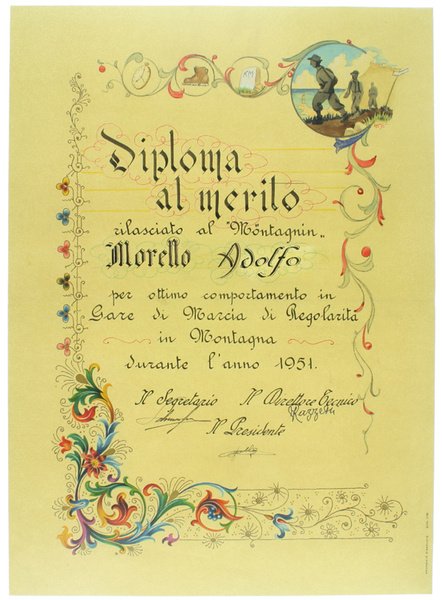 KM
Diploma
al merito
rilasciato al "Montagnin„
Morello Adolfo
per ottimo comportamento in
Gare di Marcia di Regolarità
in Montagna
durante l'anno 1951.
Il Segretario Il Direttore Tecnico
Razzeti
Il Presidente